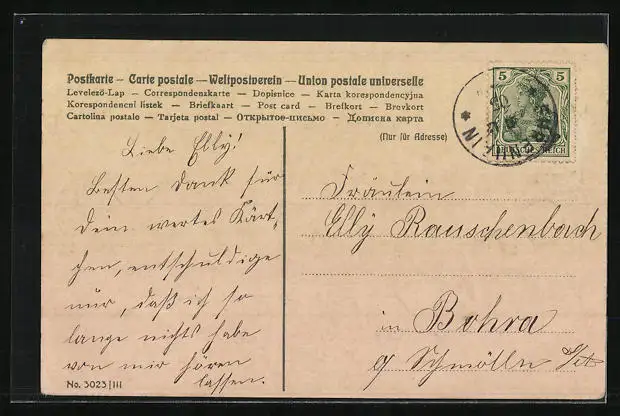 Postkarte — Carte postale — Weltpostverein — Union postale universelle
Levelező-Lap — Correspondenzkarte — Dopisnice — Karta korespondencyjna
Korespondencni lístek — Briefkaart — Post card — Brefkort — Brevkort
Cartolina postale — Tarjeta postal — Открытое-письмо — Дописна карта
(Nur für Adresse)
5 5
DEUTSCHES REICH
Liebe Elly!
Besten Dank für
Dein wertes Kärt-
chen, entschuldige
nur, daß ich so
lange nichts habe
von mir hören
lassen.
Fräulein
Elly Rauschenbach
in Bohra
Schmölln
No. 3023/III